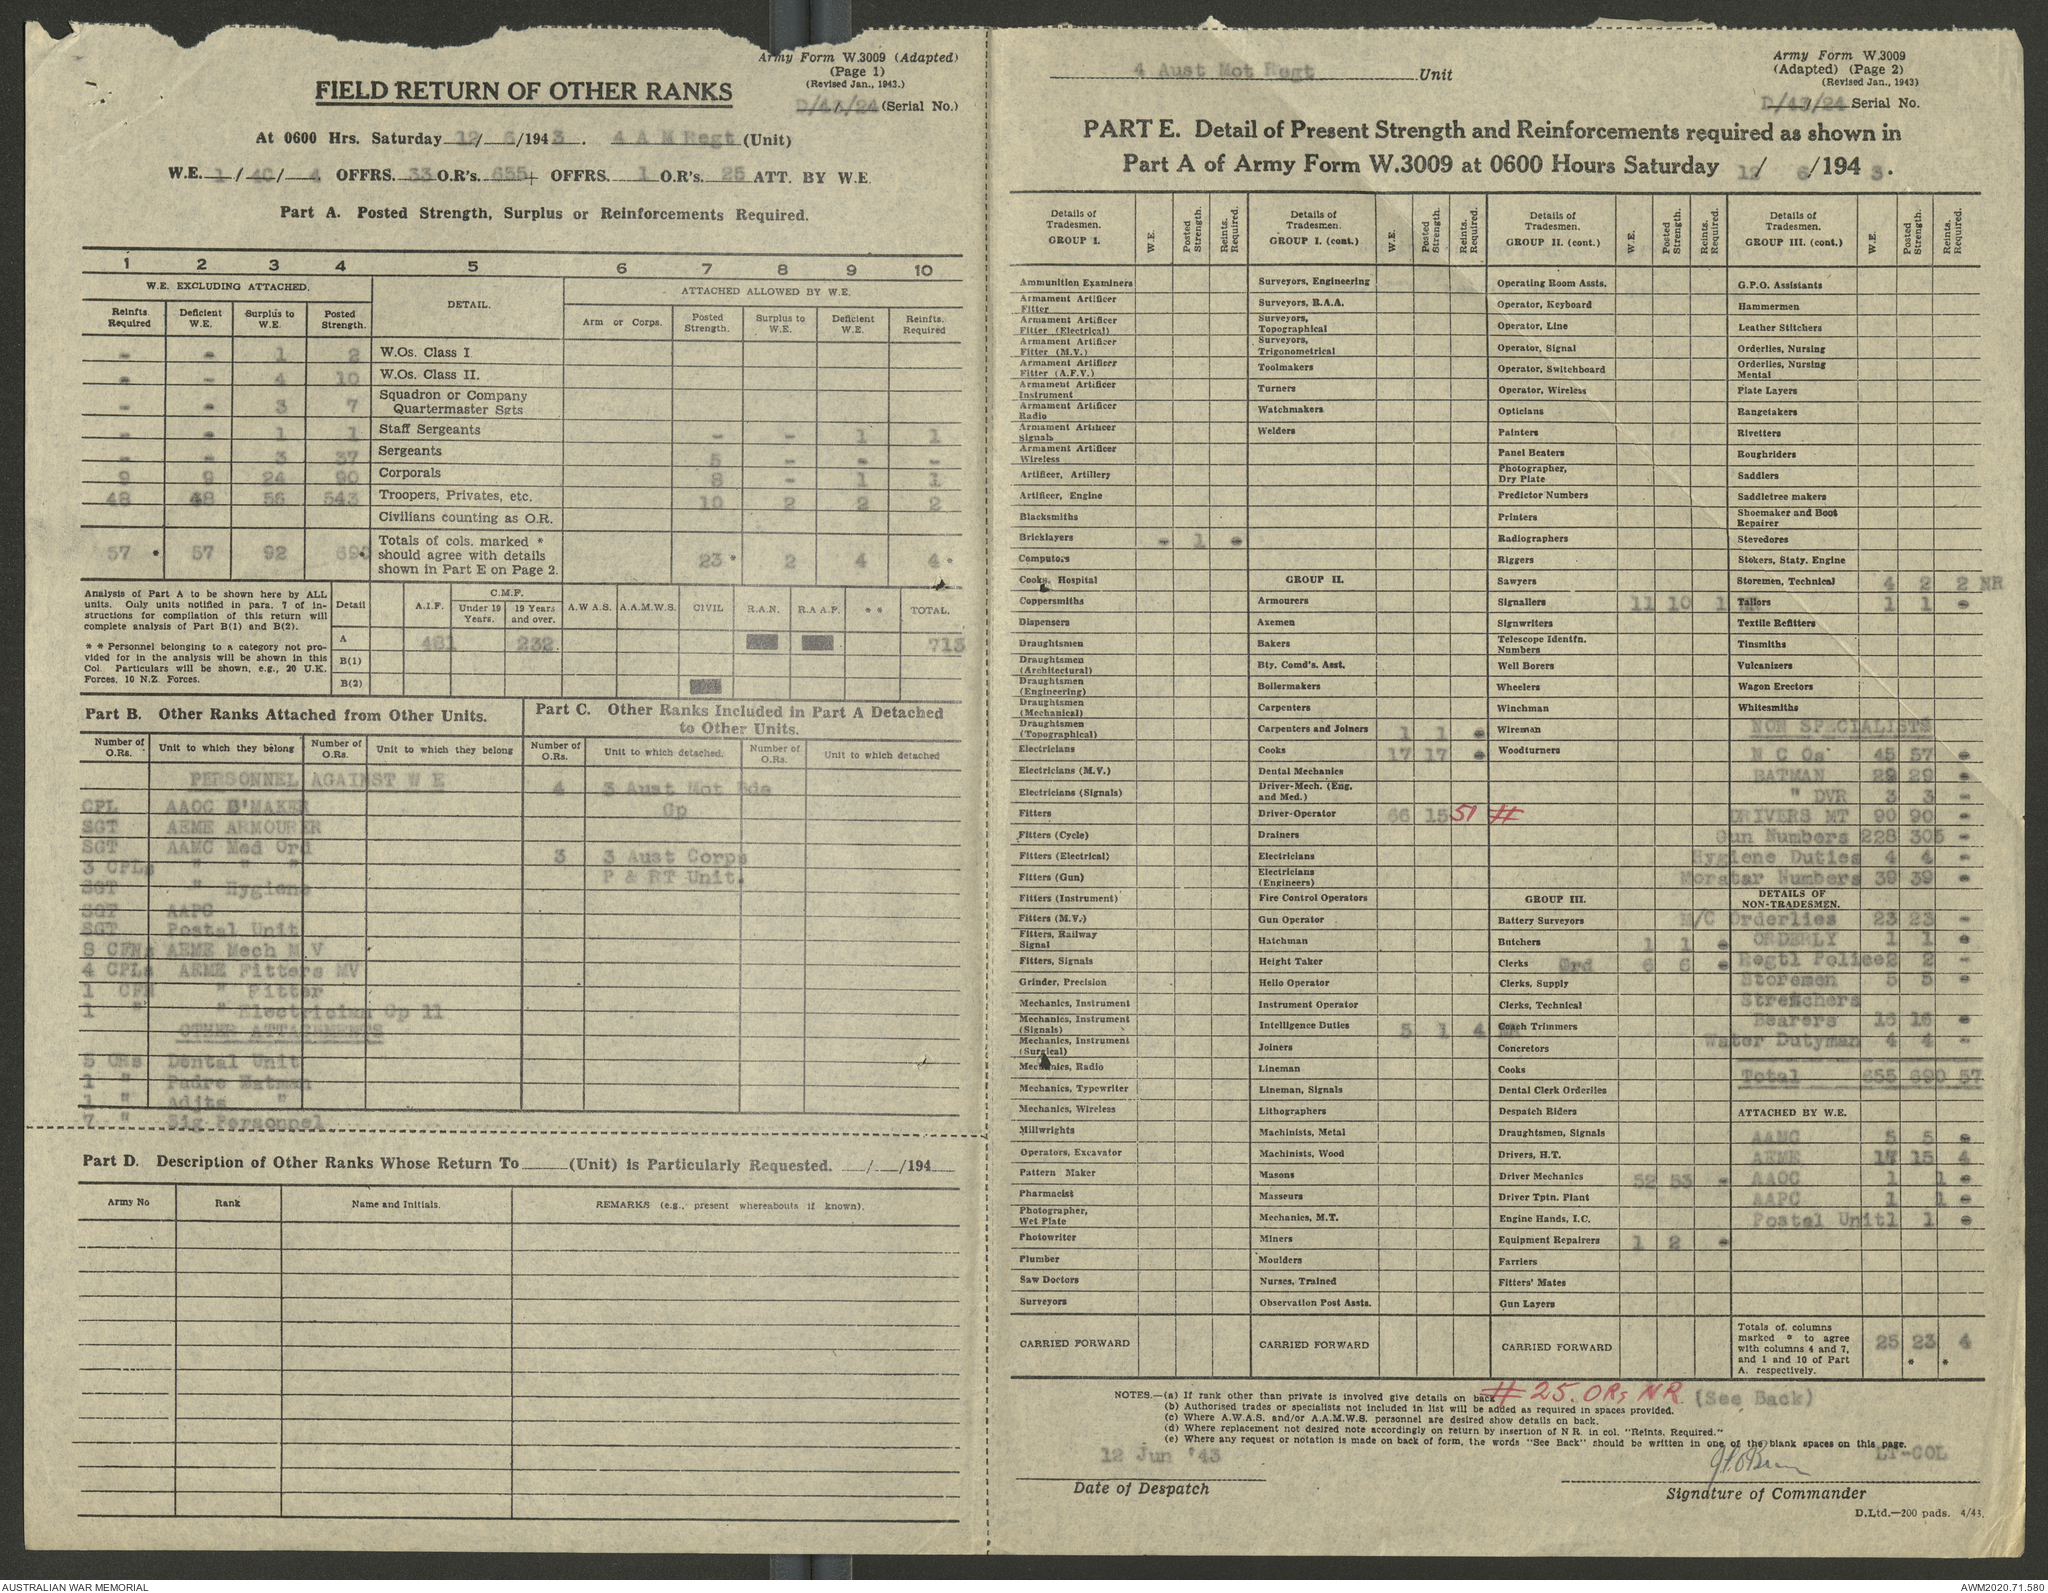 Army Form W.3009 (Adapted)
(Page 1)
(Revised Jan., 1943.)
FIELD RETURN OF OTHER RANKS
D/43/24 (Serial No.)
At 0600 Hrs. Saturday 12/ 6/1943. 4 A M Regt (Unit)
W.E. 1 / 4C / 4 OFFRS. 33 O.R's. 655+ OFFRS. 1 O.R's. 25 ATT. BY W.E.
Part A. Posted Strength, Surplus or Reinforcements Required.
1 2 3 4 5 6 7 8 9 10
W.E. EXCLUDING ATTACHED. DETAIL. ATTACHED ALLOWED BY W.E.
Reinfts. Required Deficient W.E. Surplus to W.E. Posted Strength. Arm or Corps. Posted Strength. Surplus to W.E. Deficient W.E. Reinfts. Required
- - 1 2 W.Os. Class I
- - 4 10 W.Os. Class II.
- - 3 7 Squadron or Company Quartermaster Sgts
- - 1 1 Staff Sergeants - - 1 1
- - 3 37 Sergeants 5 - - -
9 9 24 90 Corporals 8 - 1 1
48 48 56 543 Troopers, Privates, etc. 10 2 2 2
Civilians counting as O.R.
57 * 57 92 690 * Totals of cols. marked * should agree with details shown in Part E on Page 2. 23 * 2 4 4 *
Analysis of Part A to be shown here by ALL units. Only units notified in para. 7 of instructions for compilation of this return will complete analysis of Part B(1) and B(2).
* * Personnel belonging to a category not provided for in the analysis will be shown in this Col. Particulars will be shown, e.g., 20 U.K. Forces, 10 N.Z. Forces.
Detail A.I.F. C.M.F. Under 19 Years. 19 Years and over. A.W.A.S. A.A.M.W.S. CIVIL R.A.N. R.A.A.F. * * TOTAL.
A 481 232 713
B(1)
B(2)
Part B. Other Ranks Attached from Other Units.
Number of O.Rs. Unit to which they belong Number of O.Rs. Unit to which they belong
PERSONNEL AGAINST W E
CPL AAOC B'MAKER
SGT AEME ARMOURER
SGT AAMC Med Ord
3 CPLs " " "
SGT " Hygiene
SGT AAPC
SGT Postal Unit
8 CFNs AEME Mech M V
4 CPLs AEME Fitters MV
1 CFN " Fitter
1 " " Electrician Gp 11
OTHER ATTACHMENTS
5 ORs Dental Unit
1 " Padre Batman
1 " Adjts "
7 " Sig Personnel
Part C. Other Ranks Included in Part A Detached to Other Units.
Number of O.Rs. Unit to which detached. Number of O.Rs. Unit to which detached
4 3 Aust Mot Bde Gp
3 3 Aust Corps P & RT Unit.
Part D. Description of Other Ranks Whose Return To (Unit) is Particularly Requested. / /194
Army No Rank Name and Initials. REMARKS (e.g., present whereabouts if known).
4 Aust Mot Regt Unit
Army Form W.3009
(Adapted) (Page 2)
(Revised Jan., 1943)
D/43/24 Serial No.
PART E. Detail of Present Strength and Reinforcements required as shown in
Part A of Army Form W.3009 at 0600 Hours Saturday 12/ 6 /194 3.
Details of Tradesmen. GROUP I. W.E. Posted Strength. Reints. Required.
Ammunition Examiners
Armament Artificer Fitter
Armament Artificer Fitter (Electrical)
Armament Artificer Fitter (M.V.)
Armament Artificer Fitter (A.F.V.)
Armament Artificer Instrument
Armament Artificer Radio
Armament Artificer Signals
Armament Artificer Wireless
Artificer, Artillery
Artificer, Engine
Blacksmiths
Bricklayers - 1 -
Computors
Cooks, Hospital
Coppersmiths
Dispensers
Draughtsmen
Draughtsmen (Architectural)
Draughtsmen (Engineering)
Draughtsmen (Mechanical)
Draughtsmen (Topographical)
Electricians
Electricians (M.V.)
Electricians (Signals)
Fitters
Fitters (Cycle)
Fitters (Electrical)
Fitters (Gun)
Fitters (Instrument)
Fitters (M.V.)
Fitters, Railway Signal
Fitters, Signals
Grinder, Precision
Mechanics, Instrument
Mechanics, Instrument (Signals)
Mechanics, Instrument (Surgical)
Mechanics, Radio
Mechanics, Typewriter
Mechanics, Wireless
Millwrights
Operators, Excavator
Pattern Maker
Pharmacist
Photographer, Wet Plate
Photowriter
Plumber
Saw Doctors
Surveyors
CARRIED FORWARD
Details of Tradesmen. GROUP I. (cont.) W.E. Posted Strength. Reints. Required.
Surveyors, Engineering
Surveyors, R.A.A.
Surveyors, Topographical
Surveyors, Trigonometrical
Toolmakers
Turners
Watchmakers
Welders
GROUP II.
Armourers
Axemen
Bakers
Bty. Comd's. Asst.
Boilermakers
Carpenters
Carpenters and Joiners 1 1 -
Cooks 17 17 -
Dental Mechanics
Driver-Mech. (Eng. and Med.)
Driver-Operator 66 15 51 #
Drainers
Electricians
Electricians (Engineers)
Fire Control Operators
Gun Operator
Hatchman
Height Taker
Hello Operator
Instrument Operator
Intelligence Duties 5 1 4 NR
Joiners
Lineman
Lineman, Signals
Lithographers
Machinists, Metal
Machinists, Wood
Masons
Masseurs
Mechanics, M.T.
Miners
Moulders
Nurses, Trained
Observation Post Assts.
CARRIED FORWARD
Details of Tradesmen. GROUP II. (cont.) W.E. Posted Strength. Reints. Required.
Operating Room Assts.
Operator, Keyboard
Operator, Line
Operator, Signal
Operator, Switchboard
Operator, Wireless
Opticians
Painters
Panel Beaters
Photographer, Dry Plate
Predictor Numbers
Printers
Radiographers
Riggers
Sawyers
Signallers 11 10 1 NR
Signwriters
Telescope Identfn. Numbers
Well Borers
Wheelers
Winchman
Wireman
Woodturners
GROUP III.
Battery Surveyors
Butchers 1 1 -
Clerks Ord 6 6 -
Clerks, Supply
Clerks, Technical
Coach Trimmers
Concretors
Cooks
Dental Clerk Orderlies
Despatch Riders
Draughtsmen, Signals
Drivers, H.T.
Driver Mechanics 52 53 -
Driver Tptn. Plant
Engine Hands, I.C.
Equipment Repairers 1 2 -
Farriers
Fitters' Mates
Gun Layers
CARRIED FORWARD
Details of Tradesmen. GROUP III. (cont.) W.E. Posted Strength. Reints. Required.
G.P.O. Assistants
Hammermen
Leather Stitchers
Orderlies, Nursing
Orderlies, Nursing Mental
Plate Layers
Rangetakers
Rivetters
Roughriders
Saddlers
Saddletree makers
Shoemaker and Boot Repairer
Stevedores
Stokers, Staty. Engine
Storemen, Technical 4 2 2 NR
Tailors 1 1 -
Textile Refitters
Tinsmiths
Vulcanizers
Wagon Erectors
Whitesmiths
NON SPECIALISTS
N C Os 45 57 -
BATMAN 29 29 -
" DVR 3 3 -
DRIVERS MT 90 90 -
Gun Numbers 228 305 -
Hygiene Duties 4 4 -
Moratar Numbers 39 39 -
DETAILS OF NON-TRADESMEN.
M/C Orderlies 23 23 -
ORDERLY 1 1 -
Regtl Police 2 2 -
Storemen 5 5 -
Stretchers
Bearers 16 16 -
Water Dutyman 4 4 -
Total 655 690 57
ATTACHED BY W.E.
AAMC 5 5 -
AEME 17 15 4
AAOC 1 1 -
AAPC 1 1 -
Postal Unit 1 1 -
Totals of columns marked * to agree with columns 4 and 7, and 1 and 10 of Part A. respectively. 25 23 * 4 *
NOTES.—(a) If rank other than private is involved give details on back # 25. ORs NR (See Back)
(b) Authorised trades or specialists not included in list will be added as required in spaces provided.
(c) Where A.W.A.S. and/or A.A.M.W.S. personnel are desired show details on back.
(d) Where replacement not desired note accordingly on return by insertion of N R. in col. "Reints. Required."
(e) Where any request or notation is made on back of form, the words "See Back" should be written in one of the blank spaces on this page.
12 Jun '43
LT-COL
Date of Despatch
Signature of Commander
D.Ltd.—200 pads. 4/43.
AUSTRALIAN WAR MEMORIAL
AWM2020.71.580